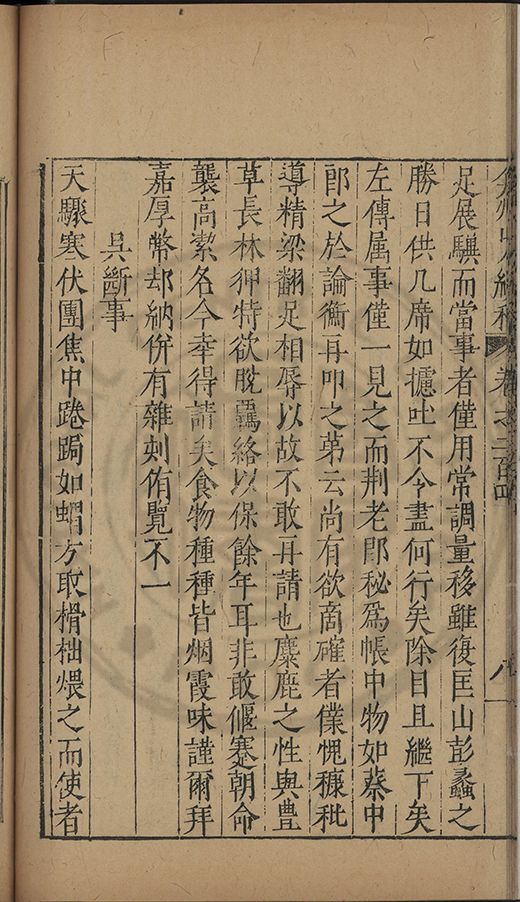 弇州山人續稿 卷之二百四 八
足展驥而當事者僅用常調量移雖復匡山彭蠡之
勝日供几席如攄吐不令盡何行矣除目且繼下矣
左傳屬事僅一見之而荆老郎秘爲帳中物如蔡中
郎之於論衡再叩之第云尚有欲商確者僕愧糠秕
導精粱翻足相辱以故不敢再請也麋鹿之性與豊
草長林狎特欲脫羈絡以保餘年耳非敢偃蹇朝命
襲高潔名今幸得請矣食物種種皆烟霞味謹爾拜
嘉厚幣却納併有雜刺侑覽不一
吳斷事
天驟寒伏團焦中踡跼如蝟方取榾柮煨之而使者